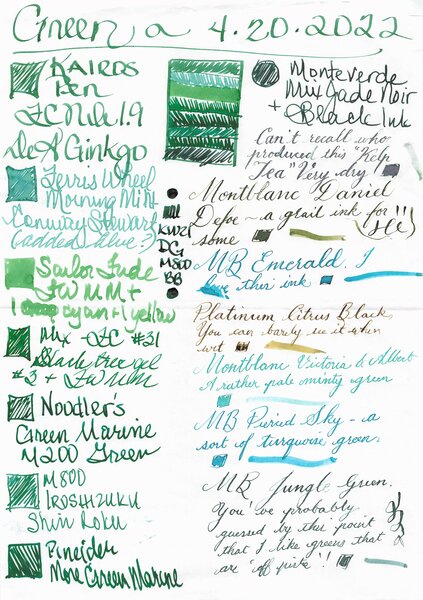 Green a 4.20.2022
KAIROS
Pen
FC Nile 1.9
DeA Ginkgo
Ferris Wheel
Morning Mint
Conway Stewart
(added blue?)
Sailor Jade
FWMM +
1 cyan + 1 yellow
Mix - FC #31
Black tree gel
#3 + FWMM
Noodler's
Green Marine
M200 Green
M800
IROSHIZUKU
Shin Roku
Pineider
More Green Marine
KWZI
DG
M800
BB
Monteverde
Mux Jade Noir
+ Black Ink
Can't recall who
produced this "Kelp
Tea" Very dry!
Montblanc Daniel
Defoe - a grail ink for
some
MB Emerald. I
love this ink
Platinum Citrus Black
You can barely see it when
wet
Montblanc Victoria & Albert
A rather pale minty green
MB Pieried Sky - a
sort of turquoise green
MB Jungle Green.
You've probably
guessed by this point
that I like greens that
are "off piste"!!